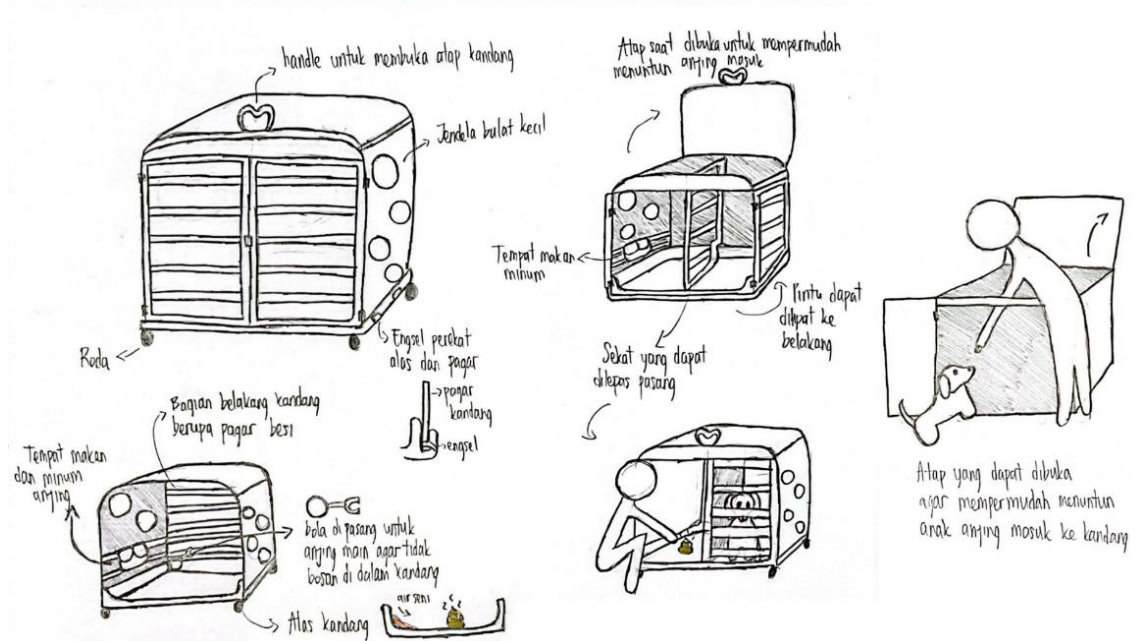 handle untuk membuka atap kandang
Jendela bulat kecil
Roda
Engsel perekat
alas dan pagar
pagar
kandang
engsel
Bagian belakang kandang
berupa pagar besi
Tempat makan
dan minum
anjing
bola di pasang untuk
anjing main agar tidak
bosan di dalam kandang
air seni
Alas kandang
Atap saat dibuka untuk mempermudah
menuntun anjing masuk
Tempat makan
minum
Pintu dapat
dilipat ke
belakang
Sekat yang dapat
dilepas pasang
Atap yang dapat dibuka
agar mempermudah menuntun
anak anjing masuk ke kandang